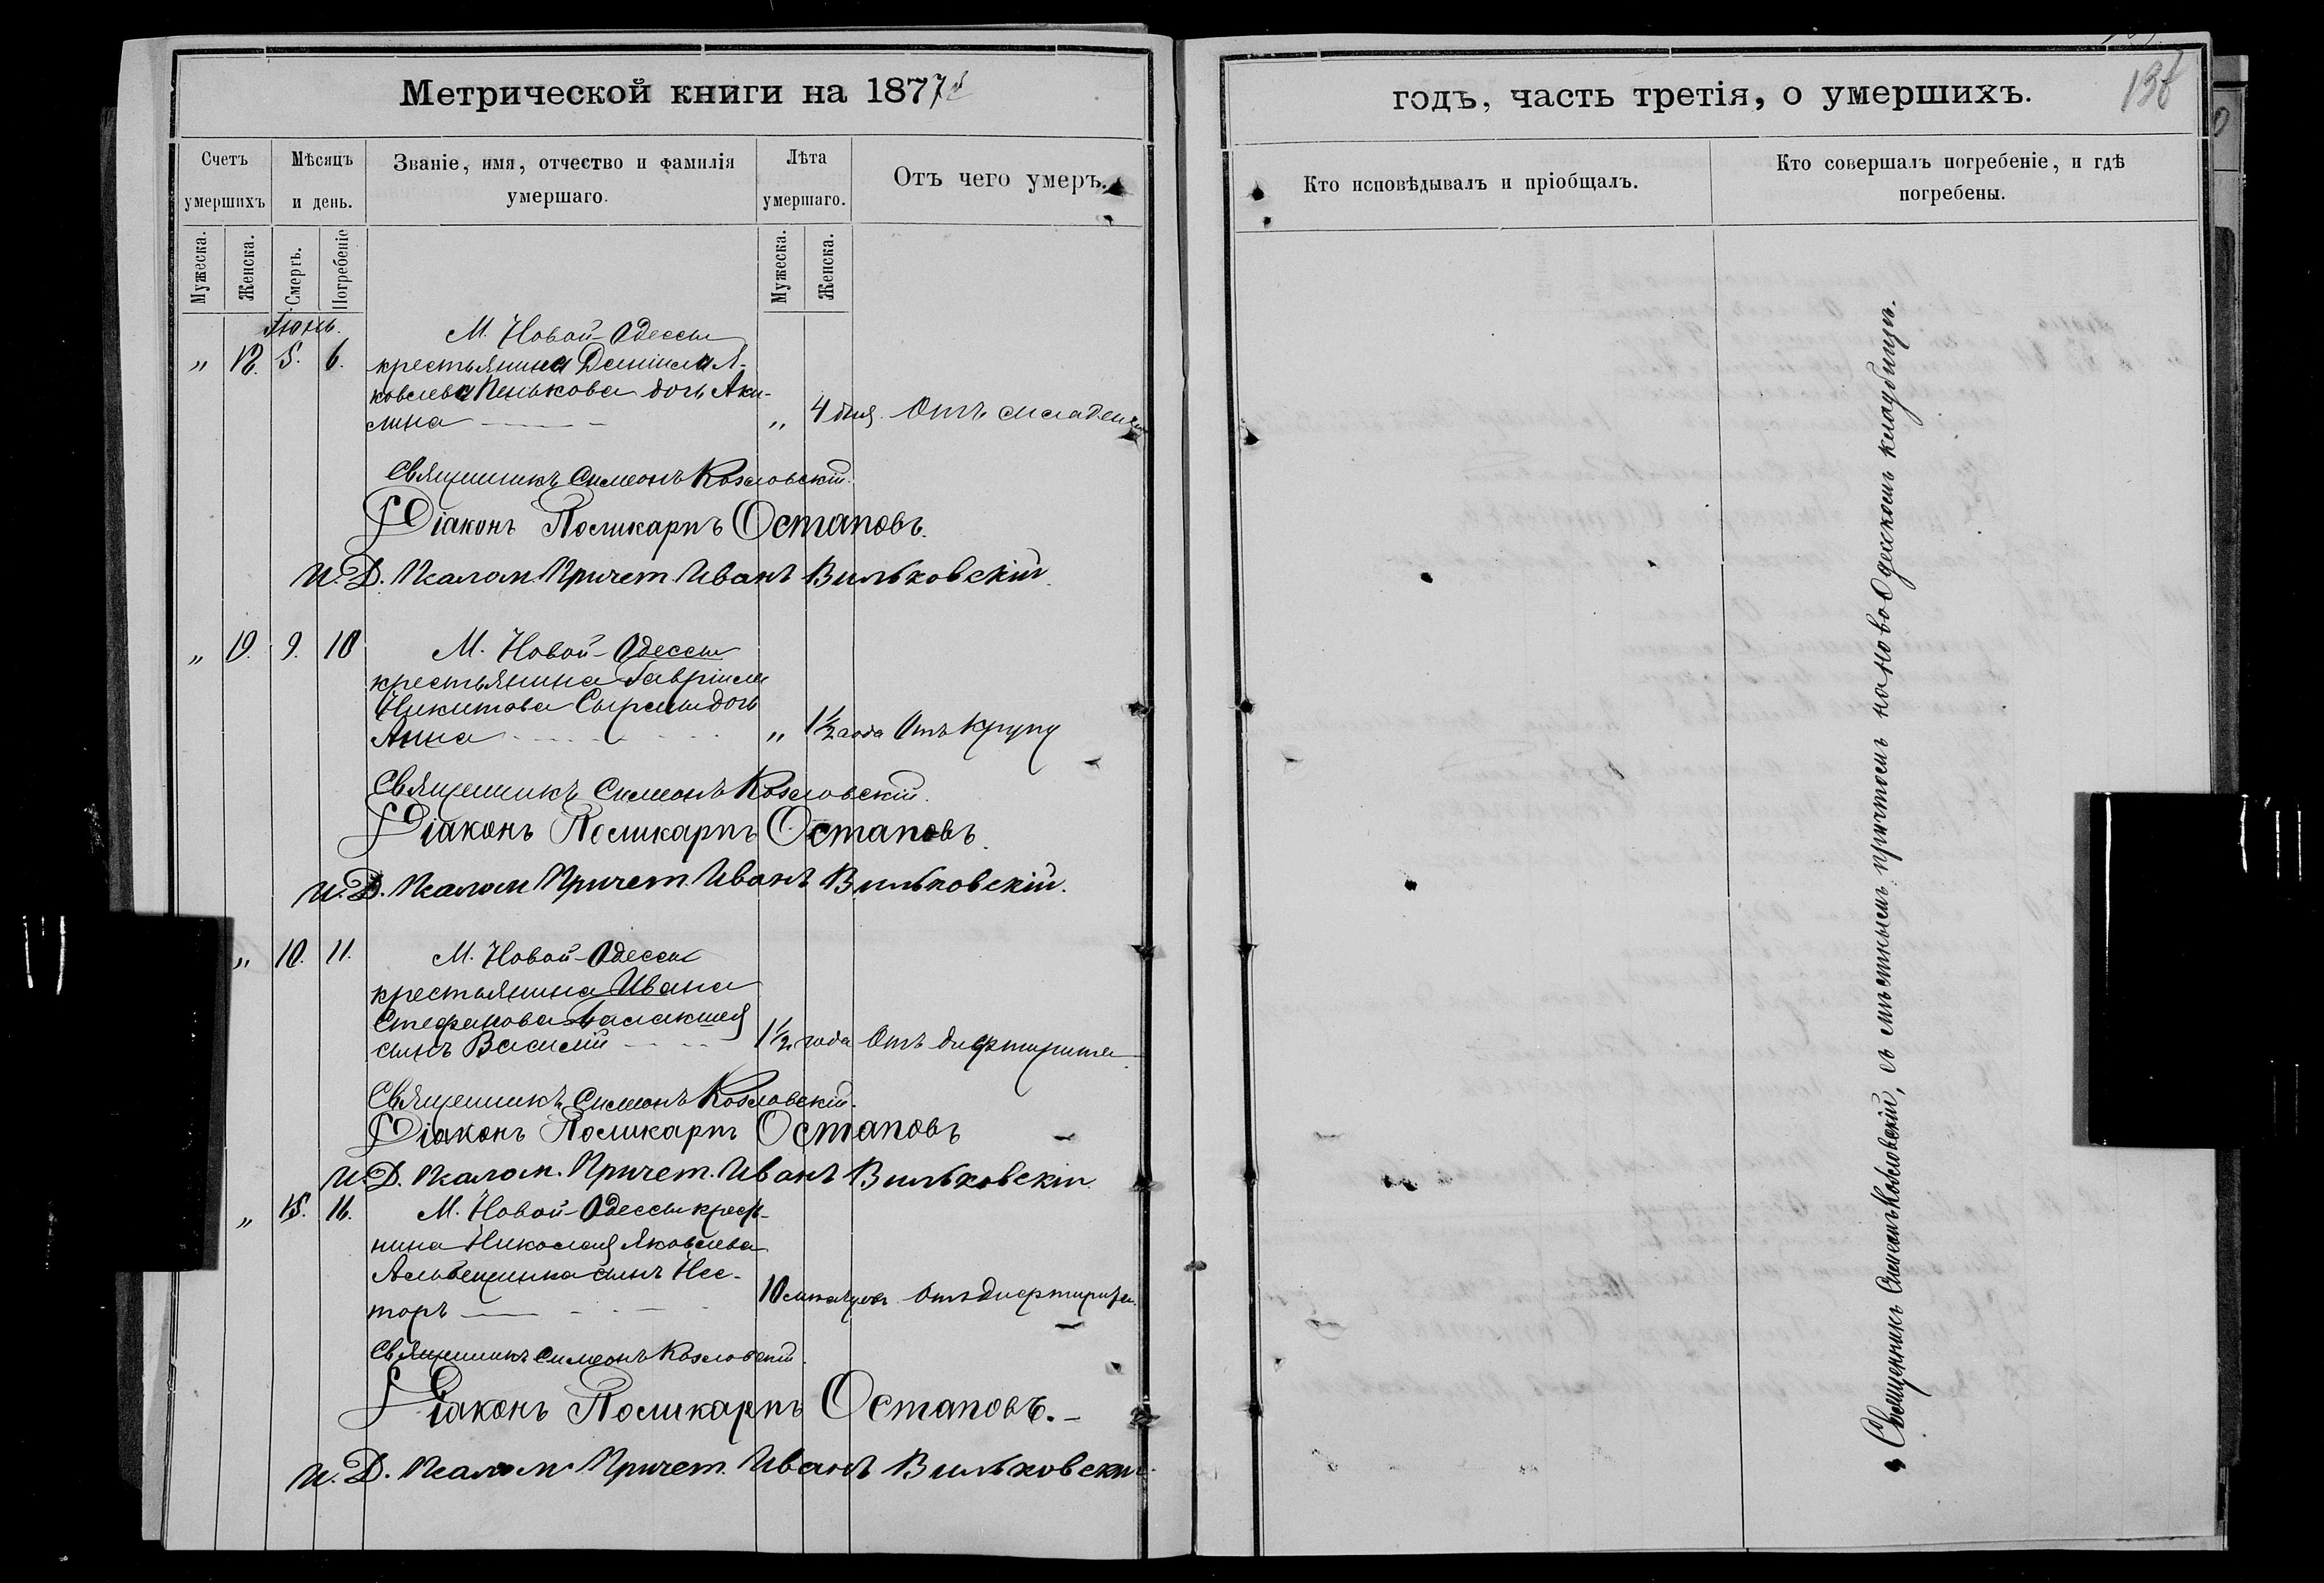 Метрической книги на 1877й
Счетъ умершихъ
Мѣсяцъ и день.
Званіе, имя, отчество и фамилія умершаго.
Лѣта умершаго.
Отъ чего умеръ.
Мужеска.
Женска.
Смерть.
Погребеніе
Мужеска.
Женска.
Іюнь.
М. Новой-Одессы
„ 18. 5. 6. крестьянина Даніила Я-
ковлева Пенькова дочь Аки-
лина „ 4 дня. Отъ младенч
Священникъ Симеонъ Козловскій.
Діаконъ Поликарпъ Остаповъ.
И. Д. Псалом. Причет. Иванъ Вильковскій.
„ 19. 9. 10 М. Новой-Одессы
крестьянина Гавріила
Никитова дочь
Анна „ 1½ года Отъ крупу
Священникъ Симеонъ Козловскій.
Діаконъ Поликарпъ Остаповъ.
И. Д. Псалом Причет. Иванъ Вильковскій.
„ 10. 11. М. Новой-Одессы
крестьянина Ивана
Стефанова Балакшея
сынъ Василій 1½ года Отъ дифтирита
Священникъ Симеонъ Козловскій.
Діаконъ Поликарпъ Остаповъ
И. Д. Псалом. Причет. Иванъ Вильковскій
„ 15. 16. М. Новой-Одессы крест-
нина Николая Яковлева
сынъ Нес-
торъ 10 мѣсяцовъ Отъ дифтирита.
Священникъ Симеонъ Козловскій.
Діаконъ Поликарпъ Остаповъ.
И. Д. Псалом Причет. Иванъ Вильковскій.
годъ, часть третія, о умершихъ.
Кто исповѣдывалъ и пріобщалъ.
Кто совершалъ погребеніе, и гдѣ погребены.
Священникъ Симеонъ Козловскій, съ мѣстнымъ причтомъ на ново Одесскомъ кладбищѣ.